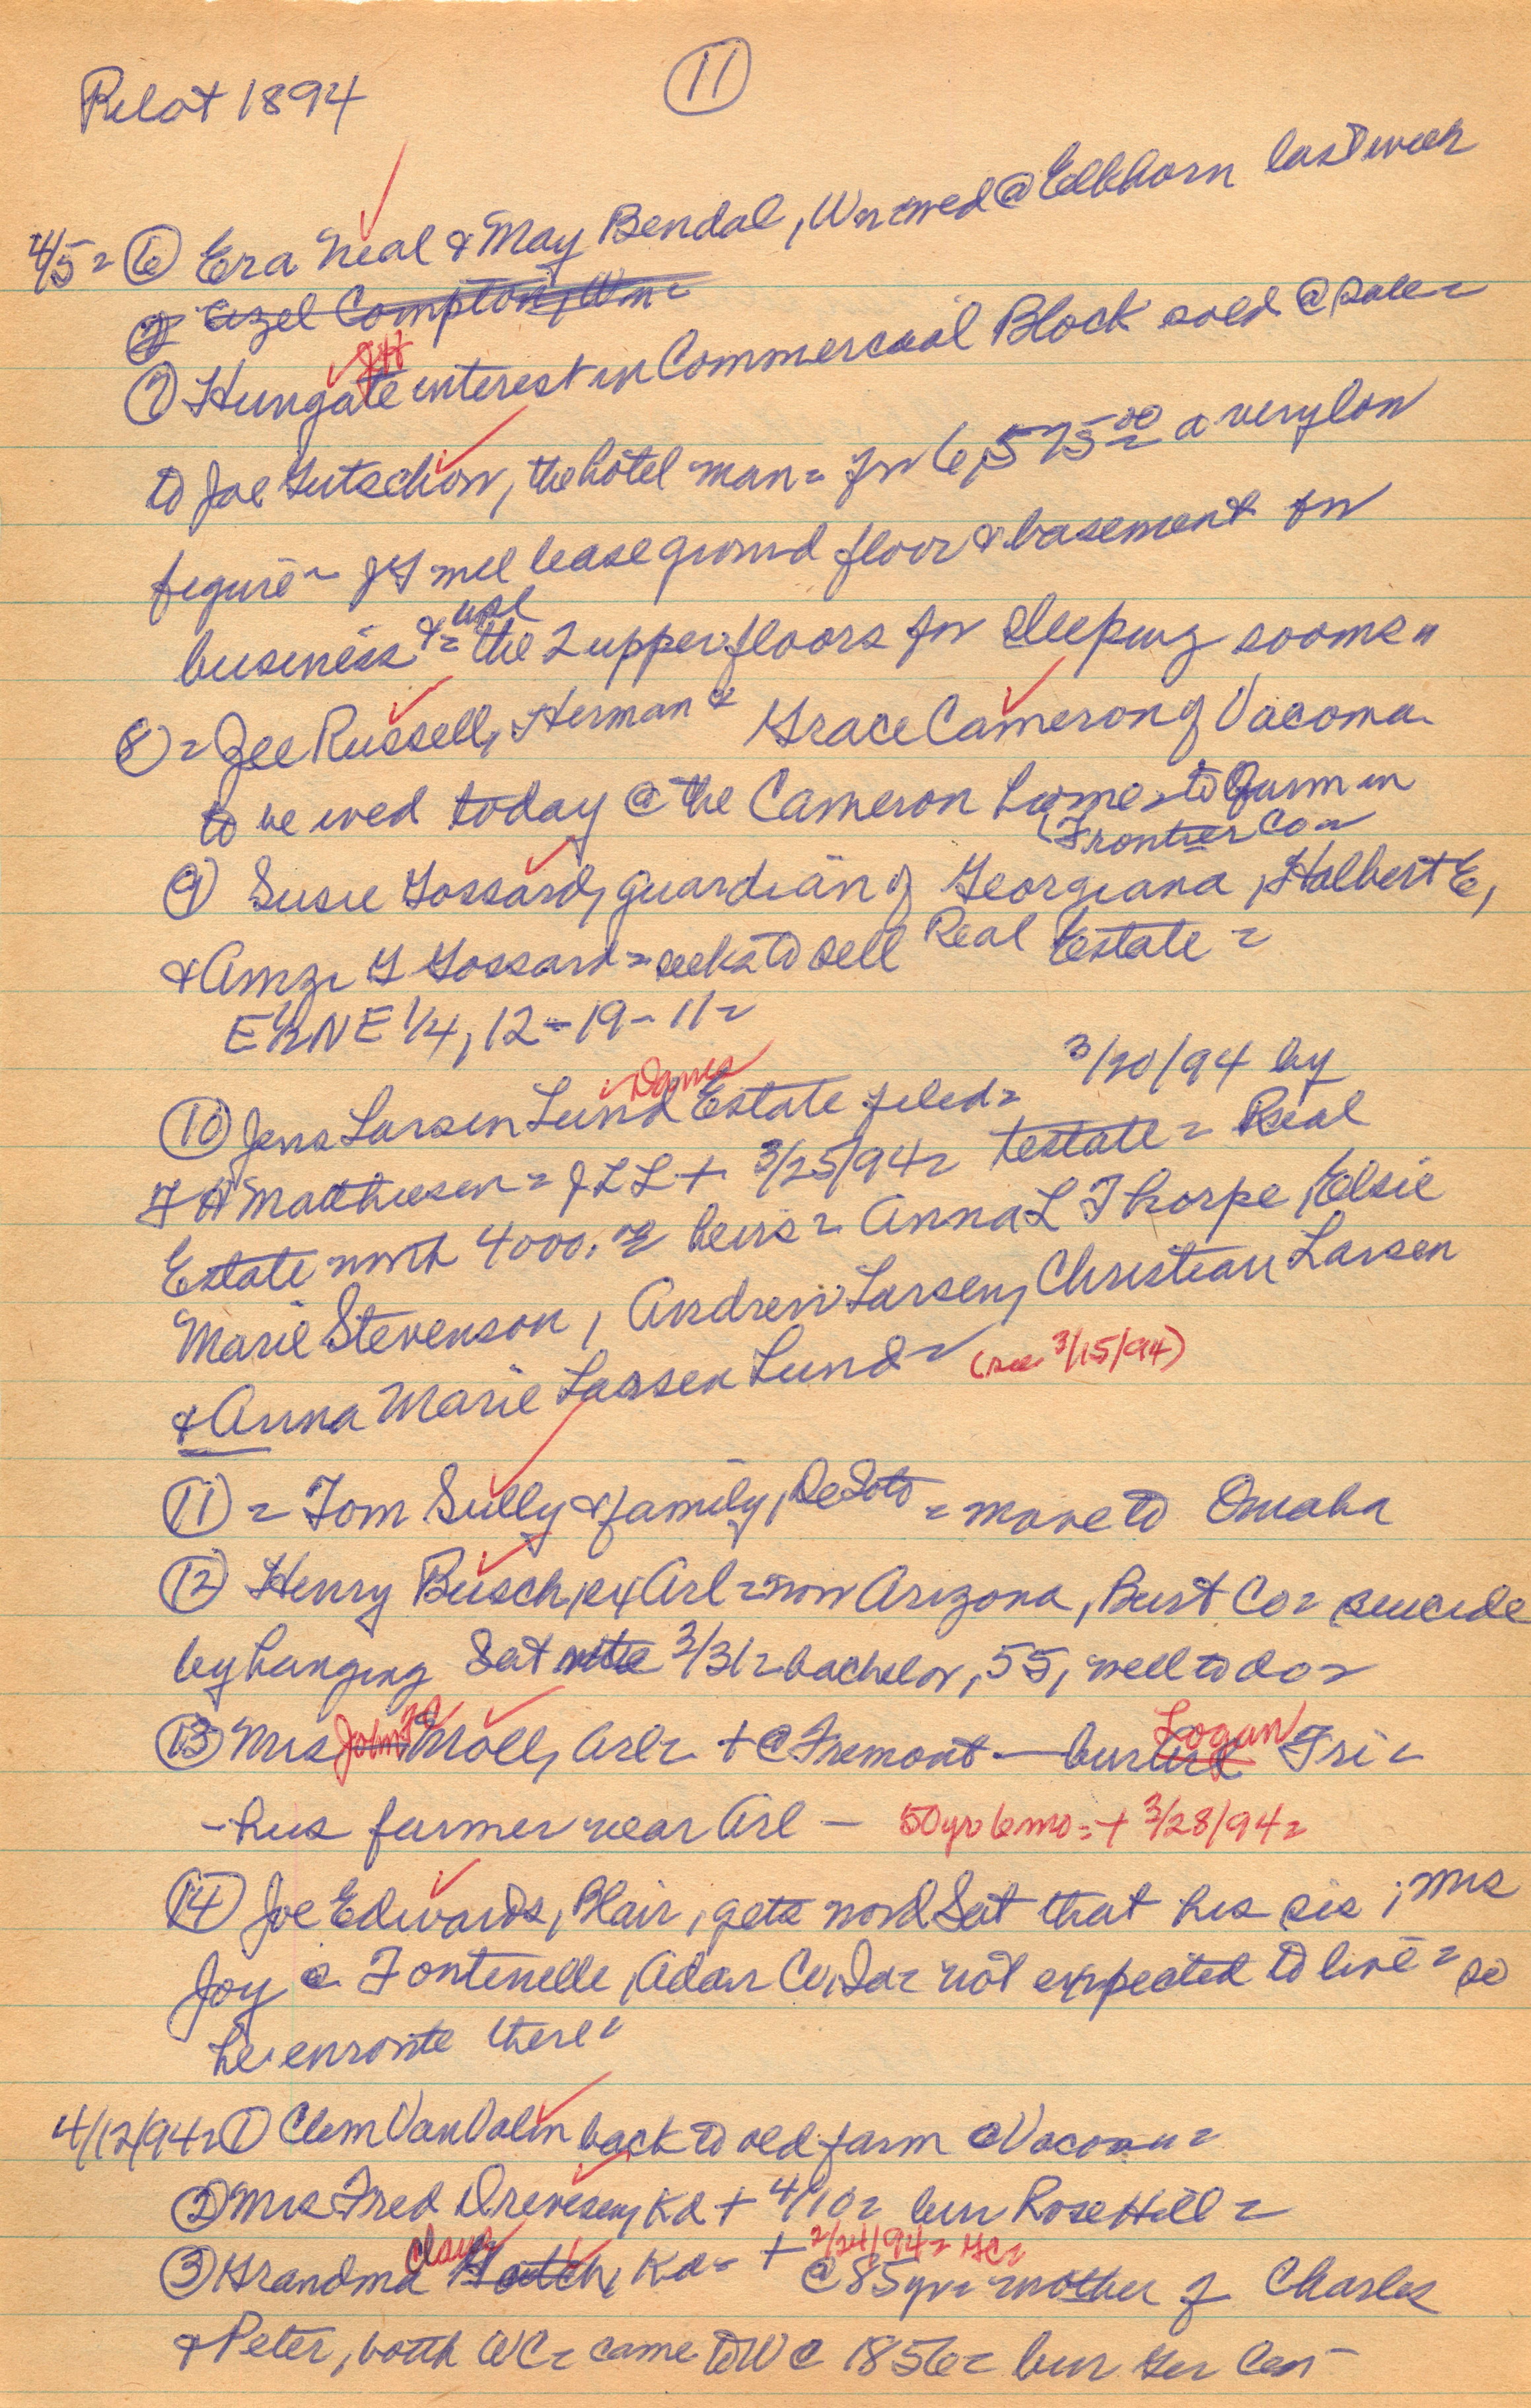 Pilot 1894
11
4/5 = (6) Era Neal & May Bendal, Wn wed @ Elkhorn last week
(7) Azel Compton, Wn =
(7) Hungate JH interest in Commercial Block sold @ Sale =
to Joe Gutschow, the hotel man = for 6,575 00 = a very low
figure ~ JG will lease ground floor & basement for
business & = use the 2 upper floors for sleeping rooms =
(8) = Lee Russell, Herman & Grace Cameron of Vacoma
to be wed today @ the Cameron home = to farm in
Frontier Co =
(9) Susie Gossard, guardian of Georgiana, Halbert E,
& Amzi G Gossard = seeks to sell Real Estate =
E 1/2 NE 1/4, 12-19-11 =
(10) Jens Larsen Lund Danes Estate filed = 3/20/94 by
F H Matthiesen = JLL + 3/25/94 = testate = Real
Estate worth 4000.00 heirs = Anna L Thorpe, Elsie
Marie Stevenson, Andrew Larsen, Christian Larsen
& Anna Marie Larsen Lund = (see 3/15/94)
(11) = Tom Sully & family, DeSoto = move to Omaha
(12) Henry Busch, ex Arl = now Arizona, Burt Co = suicide
by hanging Sat nite 3/31 = bachelor, 55, well to do =
(13) Mrs John Moll, Arl = + @ Fremont — bur Logan Fri =
- hus farmer near Arl - 50 yrs 6 mo = + 3/28/94 =
(14) Joe Edwards, Blair, gets word Sat that his sis, Mrs
Joy @ Fontenelle, Adair Co, Ia = not expected to live = so
he enroute there =
4/12/94 = (1) Clem VanValin back to old farm @ Vacoma =
(2) Mrs Fred Drevesen, Kd + 4/10 = bur Rose Hill =
(3) Grandma Claus Hatch, Kd = + 2/24/94 = GC =
@ 85 yr = mother of Charles
& Peter, both WC = came to WC 1856 = bur Ger Cem